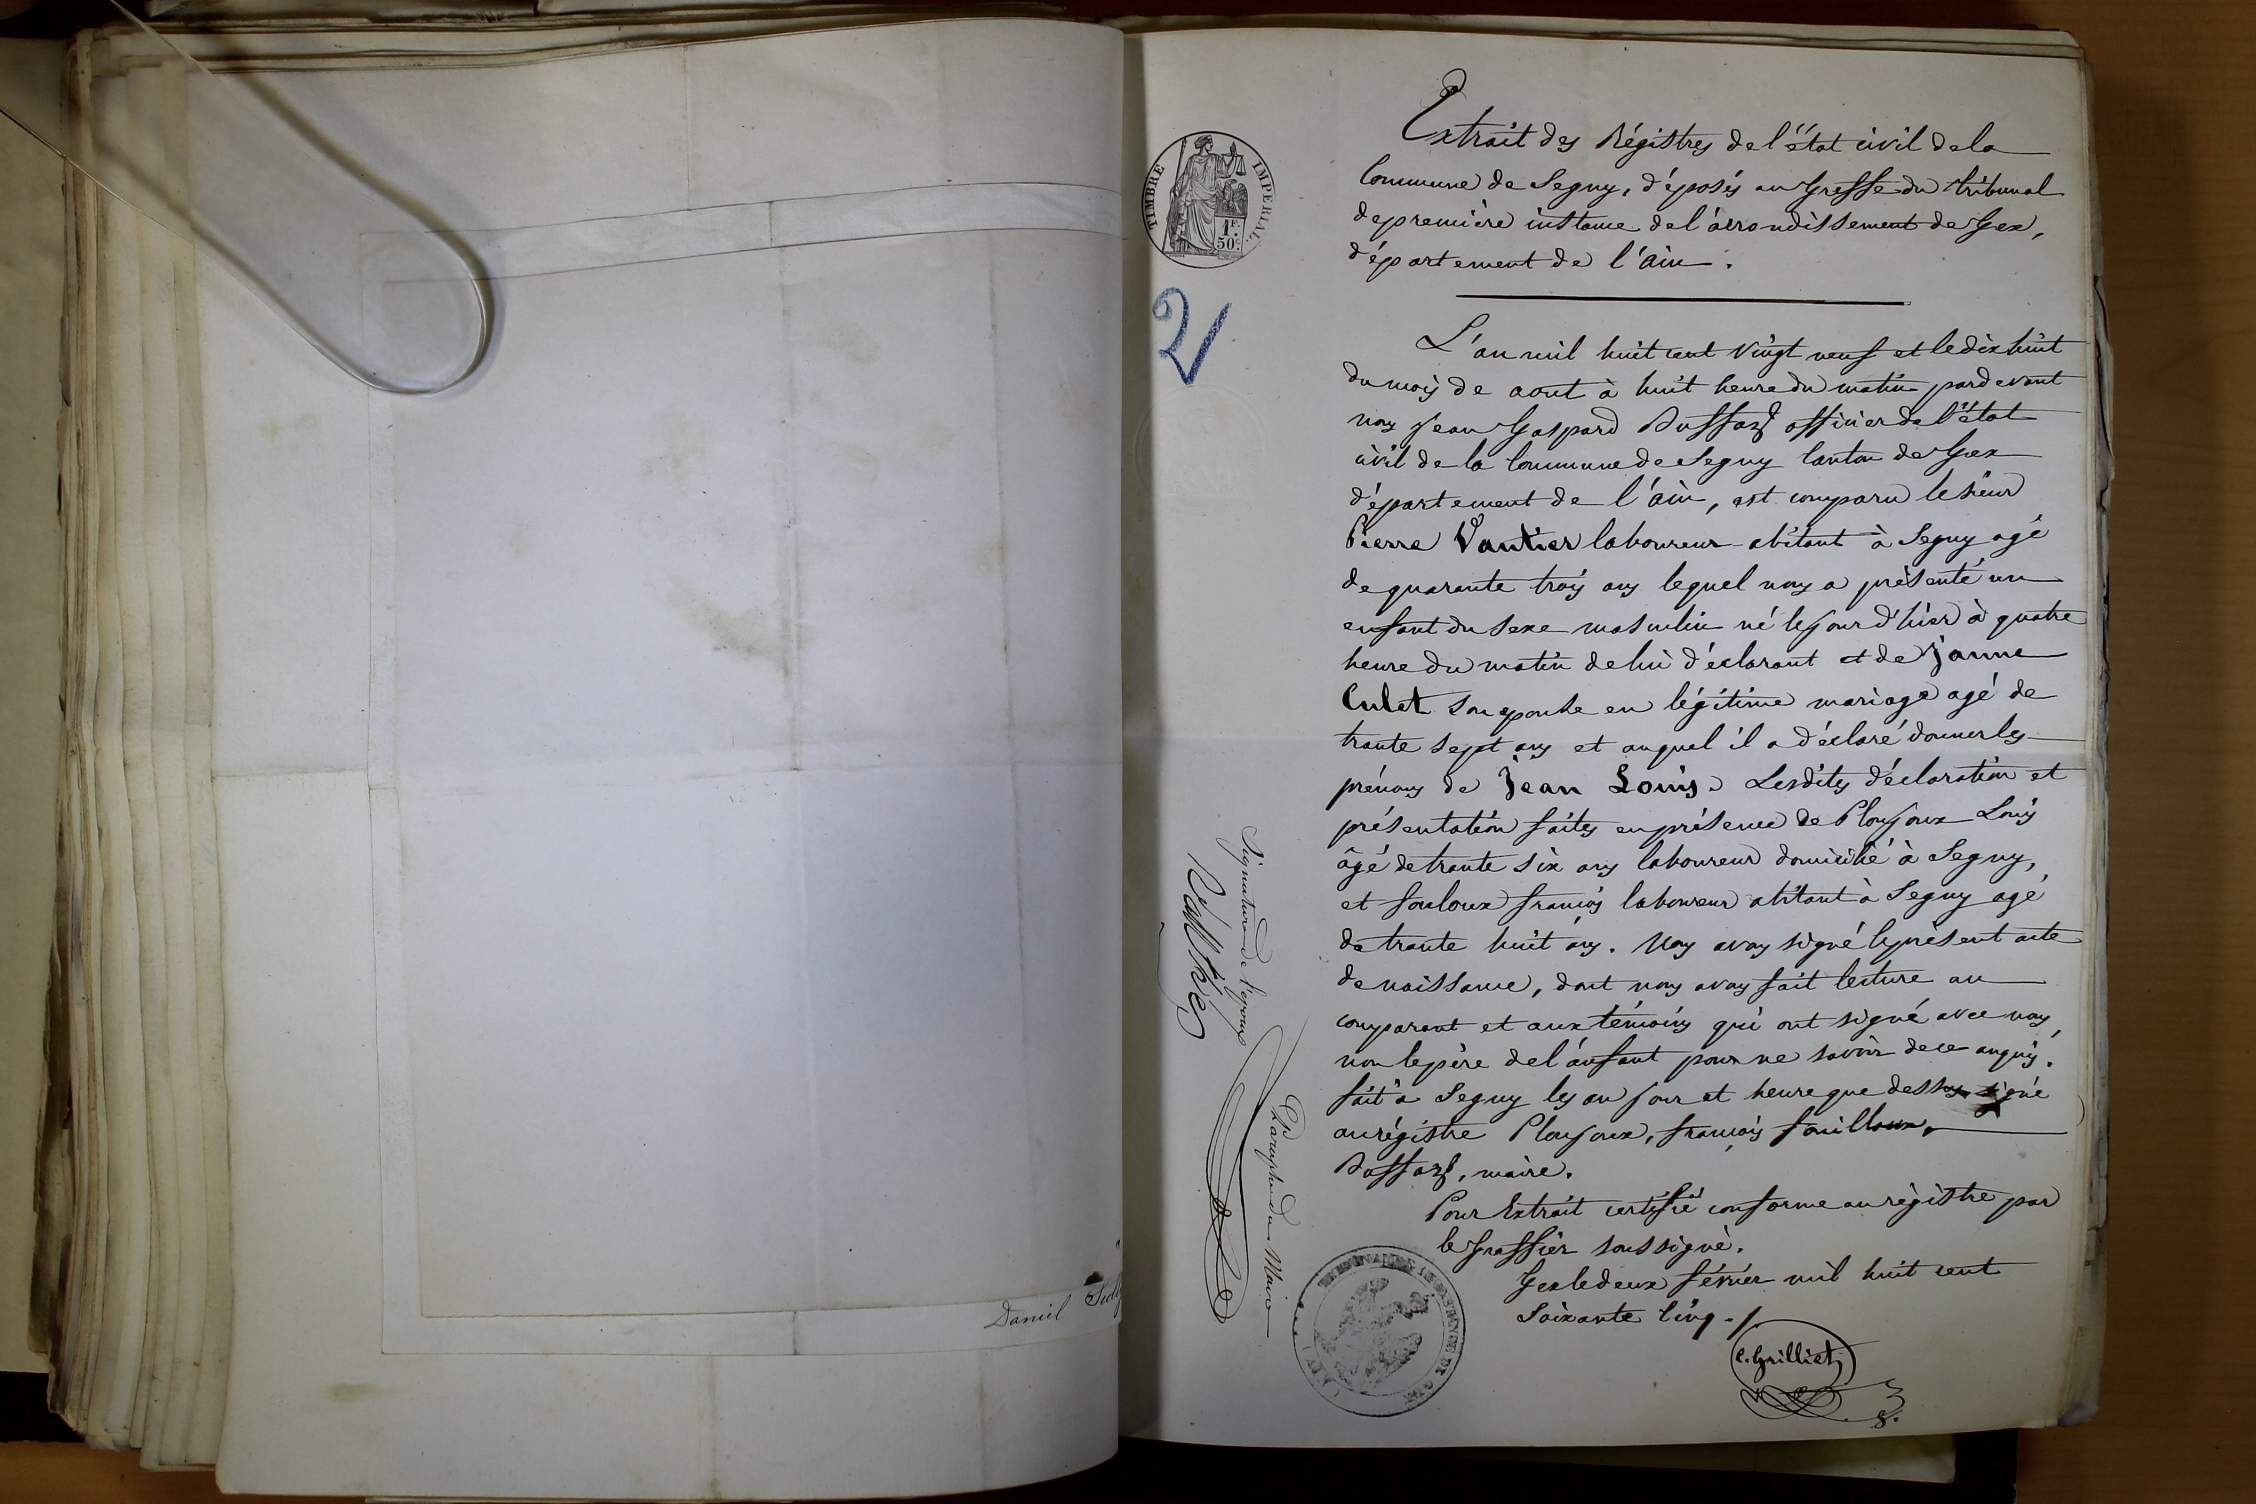 Daniel
TIMBRE IMPERIAL
1F.
50c.
2
Extrait des Régistres de l'état civil de la
Commune de Segny, d'éposés au Greffe du tribunal
de première instance de l'árrondissement de Gex,
d'épartement de l'ain.
L'an mil huit cent vingt neuf et le dix huit
du mois de aout à huit heure du matin pardevant
nous Jean Gaspard officier de l'état
civil de la Commune de Segny Canton de Gex
d'épartement de l'ain, est comparu le sieur
Pierre Vautier laboureur abitant à Segny agé
de quarante trois ans lequel nous a présenté un
enfant du sexe masculin né le jour d'hier à quatre
heure du matin de lui d'éclarant et de Janne
Culet son epouse en légitime mariage agé de
trante sept ans et auquel il a d'éclaré donner les
prénoms de Jean Louis. Lesdites d'éclaration et
présentation faites en présence de Ploujoux Louis
âgé de trante six ans laboureur domicilié à Segny,
et fouloux francois laboureur abitant à Segny agé
de trante huit ans. Nous avons signé le présent acte
de naissance, dont nous avons fait lecture au
comparant et aux témoins qui ont signé avec nous,
non le père de l'anfant pour ne savoir de ce anquis.
fait à Segny les an jour et heure que dessus signé
au régistre Ploujoux, francois fouilloux,
maire.
Pour Extrait certifié conforme au régistre par
le Greffier soussigné.
Gex le deux février mil huit cent
Soixante Cinq.
C. Grilliet
Signature de l'epoux
Paraphe du Maire